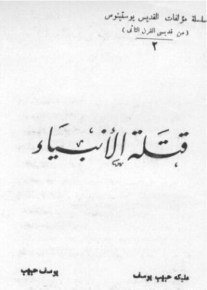 سلسلة مؤلفات القديس يوستينوس
( من قديسى القرن الثانى )
٢
قتلة الأنبياء
مليكه حبيب يوسف
يوسف حبيب